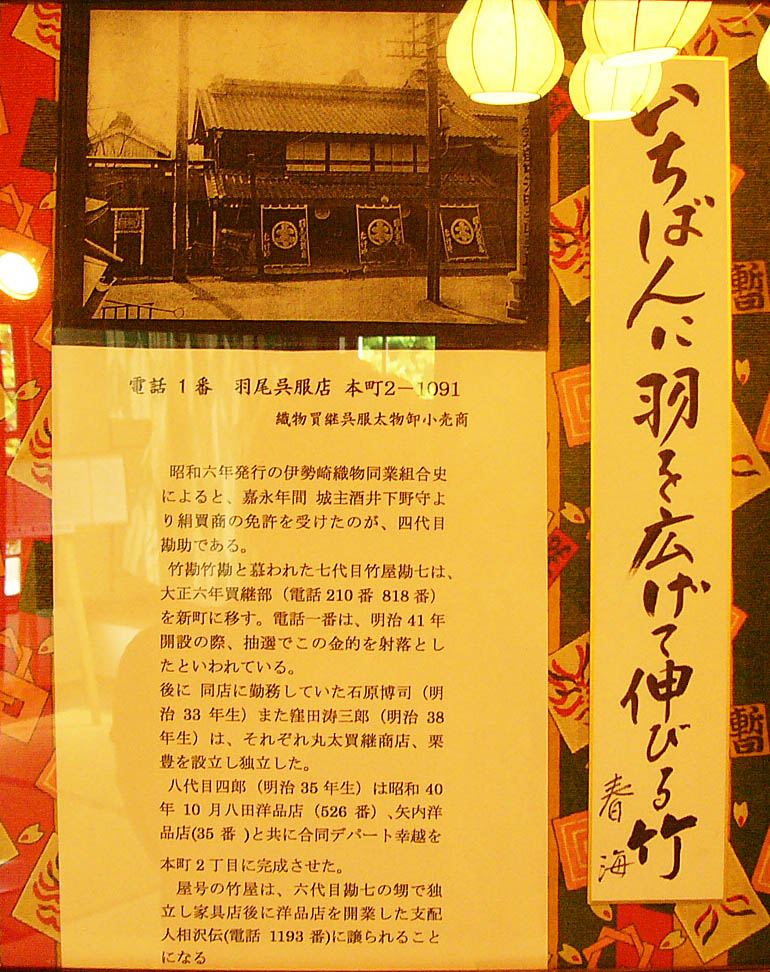 電話 1番 羽尾呉服店 本町2－1091
織物買継呉服太物卸小売商
昭和六年発行の伊勢崎織物同業組合史
によると、嘉永年間 城主酒井下野守よ
り絹買商の免許を受けたのが、四代目
勘助である。
竹勘竹勘と慕われた七代目竹屋勘七は、
大正六年買継部（電話210番 818番）
を新町に移す。電話一番は、明治41年
開設の際、抽選でこの金的を射落とし
たといわれている。
後に 同店に勤務していた石原博司（明
治 33 年生）また窪田涛三郎（明治 38
年生）は、それぞれ丸太買継商店、栗
豊を設立し独立した。
八代目四郎（明治35年生）は昭和 40
年 10 月八田洋品店（526 番）、矢内洋
品店(35 番 )と共に合同デパート幸越を
本町2丁目に完成させた。
屋号の竹屋は、六代目勘七の甥で独
立し家具店後に洋品店を開業した支配
人相沢伝(電話 1193 番)に譲られること
になる
いちばんに羽を広げて伸びる竹
春海
暫
暫